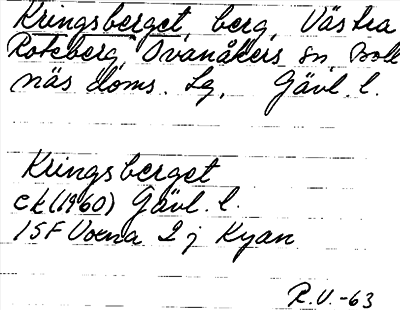 Kringsberget, berg, Västra
Roteberg, Ovanåkers sn, Boll
näs doms. Lg, Gävl. l.
Kringsberget
ek (1960) Gävl. l.
15F Voxna 2 j Kyan
R.V.-63